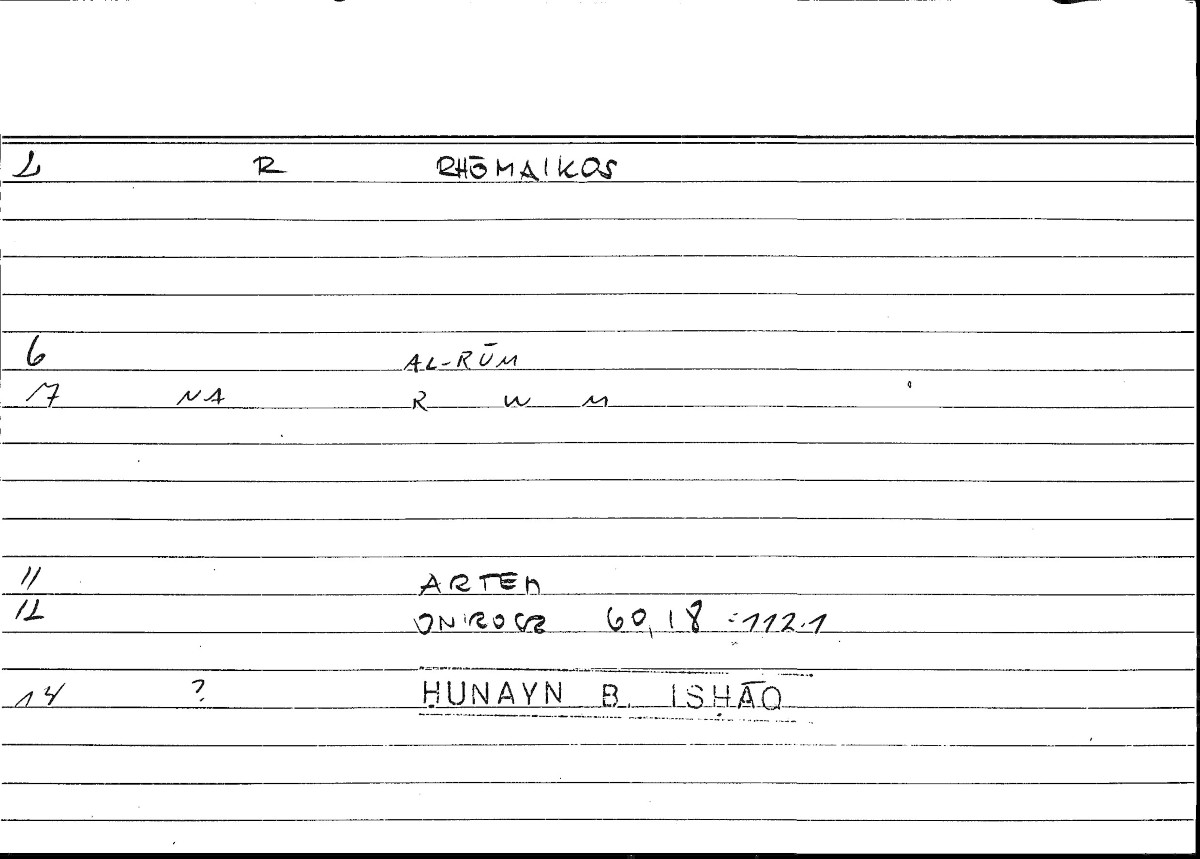 2 R RHŌMAIKOS
6 AL-RŪM
17 NA R W M
11 ARTEM
12 ONIROCR 60,18 =112.1
14 ? ḤUNAYN B. ISḤĀQ